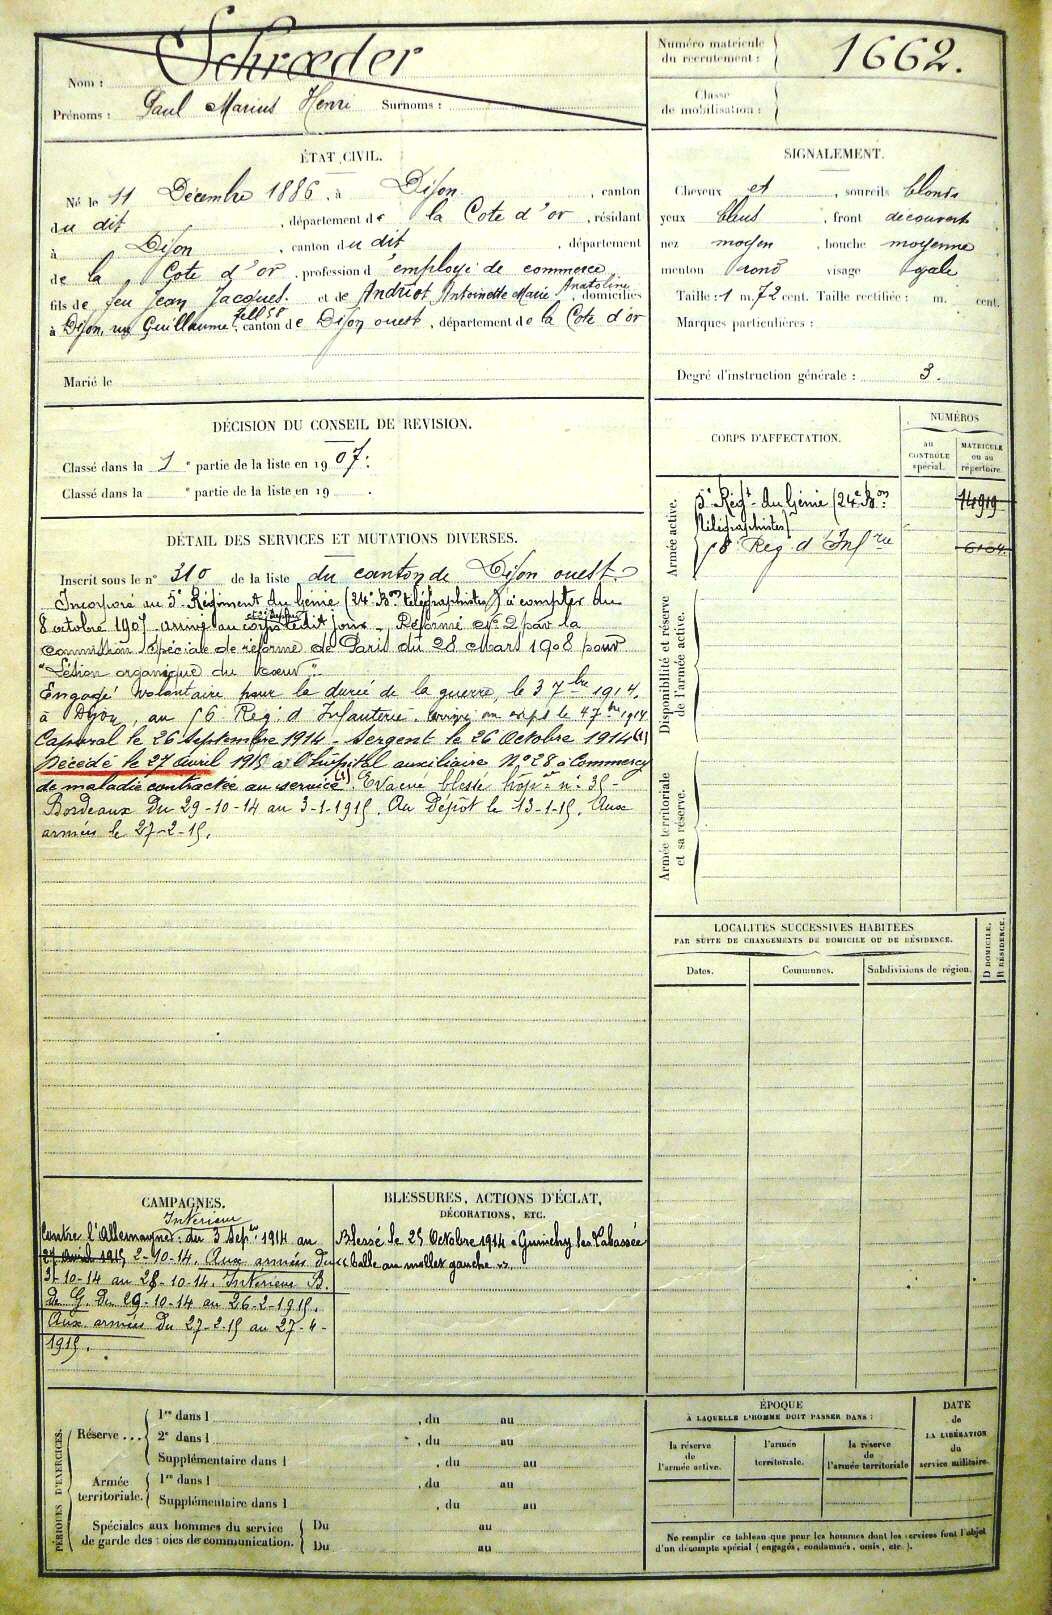 Nom : Schrœder
Prénoms : Paul Marius Henri Surnoms :
Numéro matricule du recrutement : 1662.
Classe de mobilisation :
ÉTAT CIVIL.
Né le 11 Décembre 1886, à Dijon, canton
du dit, département de la Cote d'or, résidant
à Dijon, canton du dit, département
de la Cote d'or, profession d'employé de commerce
fils de feu Jean Jacques. et de Andriot Antoinette Marie Anatoline, domiciliés
à Dijon, rue Guillaume Tell 58, canton de Dijon ouest, département de la Cote d'or
Marié le
SIGNALEMENT.
Cheveux et, sourcils blonds
yeux bleus, front découvert
nez moyen, bouche moyenne
menton rond visage ovale
Taille : 1 m. 72 cent. Taille rectifiée : m. cent.
Marques particulières :
Degré d'instruction générale : 3.
DÉCISION DU CONSEIL DE REVISION.
Classé dans la 1e partie de la liste en 1907.
Classé dans la e partie de la liste en 19 .
CORPS D'AFFECTATION.
NUMÉROS
au CONTRÔLE spécial.
MATRICULE ou au répertoire.
Armée active.
5e Régt du Génie (24e Bon
télégraphistes)
14919
Reg d'Infrie
Disponibilité et réserve de l'armée active.
Armée territoriale et sa réserve.
DÉTAIL DES SERVICES ET MUTATIONS DIVERSES.
Inscrit sous le n° 310 de la liste du canton de Dijon ouest
Incorporé au 5e Régiment du Génie (24e Bon télégraphistes) à compter du
8 octobre 1907 arrivé au corps ledit jour - Réformé N° 2 par la
commission spéciale de réforme de Paris du 28 Mars 1908 pour
"Lésion organique du coeur".
Engagé volontaire pour la durée de la guerre, le 3 7bre 1914.
à Dijon, au Reg d'Infanterie. Arrivé au corps le 4 7bre 1914
Caporal le 26 Septembre 1914 - Sergent le 26 Octobre 1914 (1)
Décédé le 27 Avril 1915 à l'hôpital auxiliaire N° 28 à Commercy
de maladie contractée au service (1) Evacué blessé hôp. n° 35 -
Bordeaux du 29-10-14 au 3-1-1915. Au Dépôt le 13-1-15. Aux
armées le 27-2-15.
LOCALITÉS SUCCESSIVES HABITÉES
PAR SUITE DE CHANGEMENTS DE DOMICILE OU DE RÉSIDENCE.
Dates. Communes. Subdivisions de région.
D DOMICILE. R RÉSIDENCE.
CAMPAGNES.
Intérieur
Contre l'Allemagne : du 3 Sepbre 1914 au
27 Avril 1915 2-10-14. Aux armées du
3-10-14 au 28-10-14. Intérieur B.
de G. Du 29-10-14 au 26-2-1915.
Aux armées Du 27-2-15 au 27-4-
1915.
BLESSURES, ACTIONS D'ÉCLAT,
DÉCORATIONS, ETC.
Blessé le 25 Octobre 1914 à Guinchy les Labassée
"balle au mollet gauche"
PÉRIODES D'EXERCICES.
Réserve...
1re dans l , du au
2e dans l , du au
Supplémentaire dans l , du au
Armée territoriale.
1re dans l , du au
Supplémentaire dans l , du au
Spéciales aux hommes du service
de garde des voies de communication.
Du au
Du au
ÉPOQUE
À LAQUELLE L'HOMME DOIT PASSER DANS :
la réserve de l'armée active.
l'armée territoriale.
la réserve de l'armée territoriale
DATE de LA LIBÉRATION du service militaire.
Ne remplir ce tableau que pour les hommes dont les services font l'objet
d'un décompte spécial (engagés, condamnés, omis, etc.).